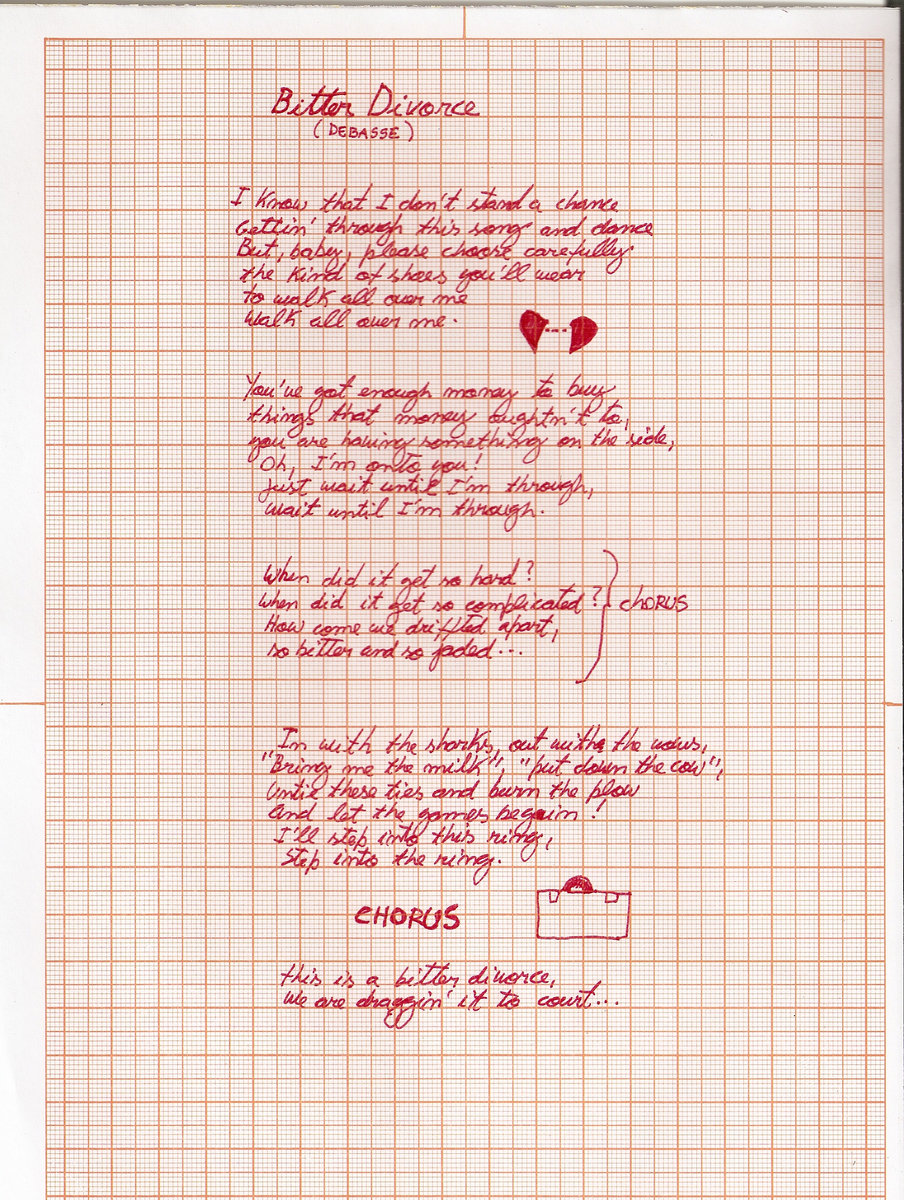 Bitter Divorce
(DEBASSE)
I know that I don't stand a chance
Gettin' through this song and dance
But, baby, please choose carefully
the kind of shoes you'll wear
to walk all over me
Walk all over me.
You've got enough money to buy
things that money oughtn't to,
you are having something on the side,
Oh, I'm onto you!
Just wait until I'm through,
wait until I'm through.
When did it get so hard?
When did it get so complicated?
CHORUS
How come we drifted apart,
so bitter and so faded...
In with the sharks, out with the vows,
"Bring me the milk", "put down the cow",
Untie these ties and burn the plow
And let the games begin!
I'll step into this ring,
Step into the ring.
CHORUS
this is a bitter divorce,
We are draggin' it to court...